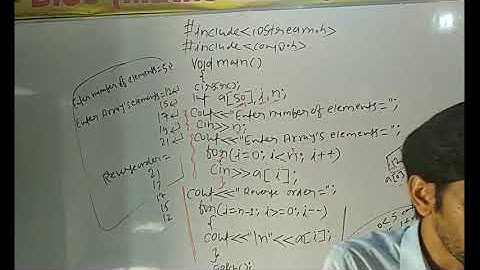 #include<iostream.h>
#include<conio.h>
Void main()
{
clrscr();
int a[50],i,n;
Cout<<"Enter number of elements=";
Cin>>n;
Cout<<"Enter Array's elements=";
for(i=0; i<n; i++)
Cin>>a[i];
Cout<<"Reverse order=";
for(i=n-1; i>=0; i--)
{
Cout<<"\n"<<a[i];
}
getch();
Enter number of elements=5
Enter Array's elements=12
15
17
19
21
Reverse order=
21
17
15
12
a[0]